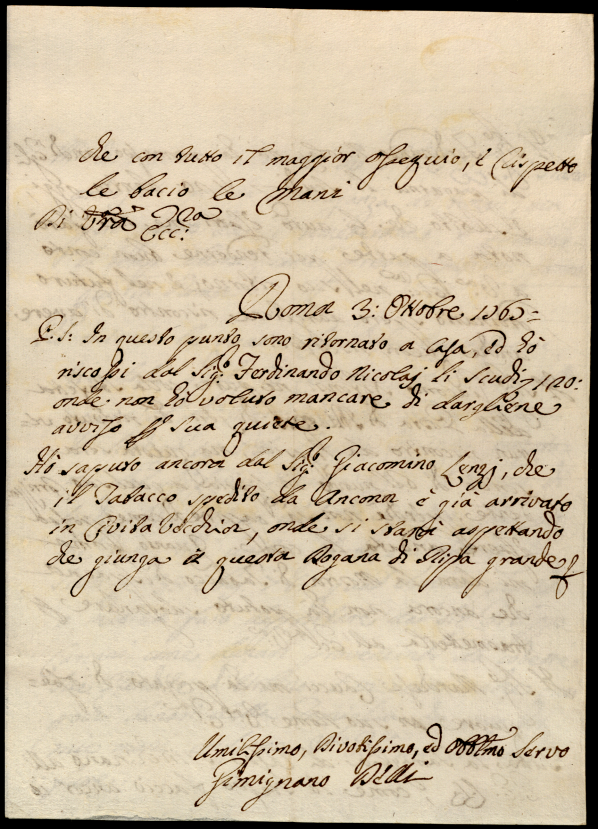 che con tutto il maggior ossequio, e rispetto
le bacio le Mani
Di Vra Ecc:za
Roma 3: Ottobre 1765=
P. S: In questo punto sono ritornato a Casa, ed hò
riscossi dal Sig:r Ferdinando Nicolaj li scudi 120:
onde non hò voluto mancare di dargliene
avviso p sua quiete.
Hò saputo ancora dal Sig:r Giacomino Lenzj, che
il Tabacco spedito da Ancona è già arrivato
in Civita Vecchia, onde si starà aspettando
che giunga a questa Dogana di Ripa grande
Umilissimo, Divotissimo, ed Obblmo Servo
Gimignano Belli